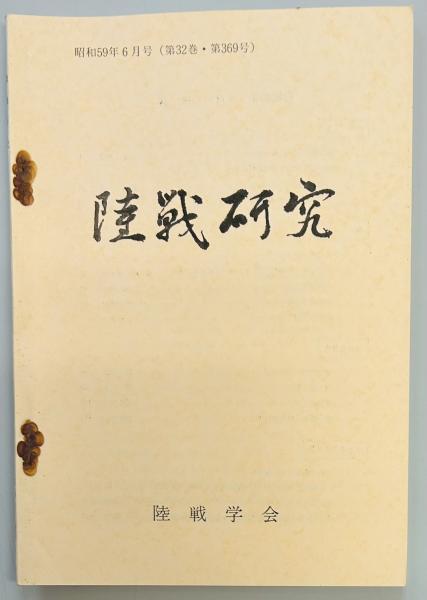 昭和59年6月号（第32巻・第369号）
陸戦研究
陸戦学会